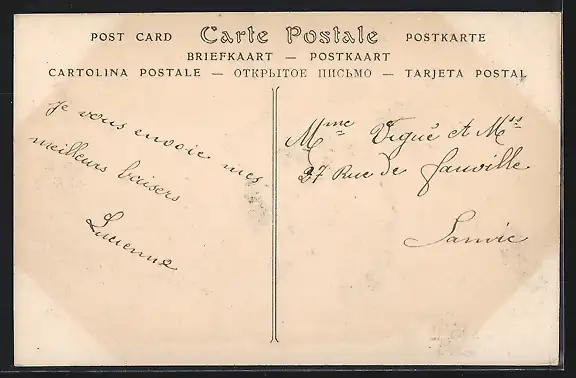 POST CARD Carte Postale POSTKARTE
BRIEFKAART — POSTKAART
CARTOLINA POSTALE — ОТКРЫТОЕ ПИСЬМО — TARJETA POSTAL
Je vous envoie mes
meilleurs baisers
Lucienne
Mme Vigué et Mrs
27 Rue de fauville
Sanvic